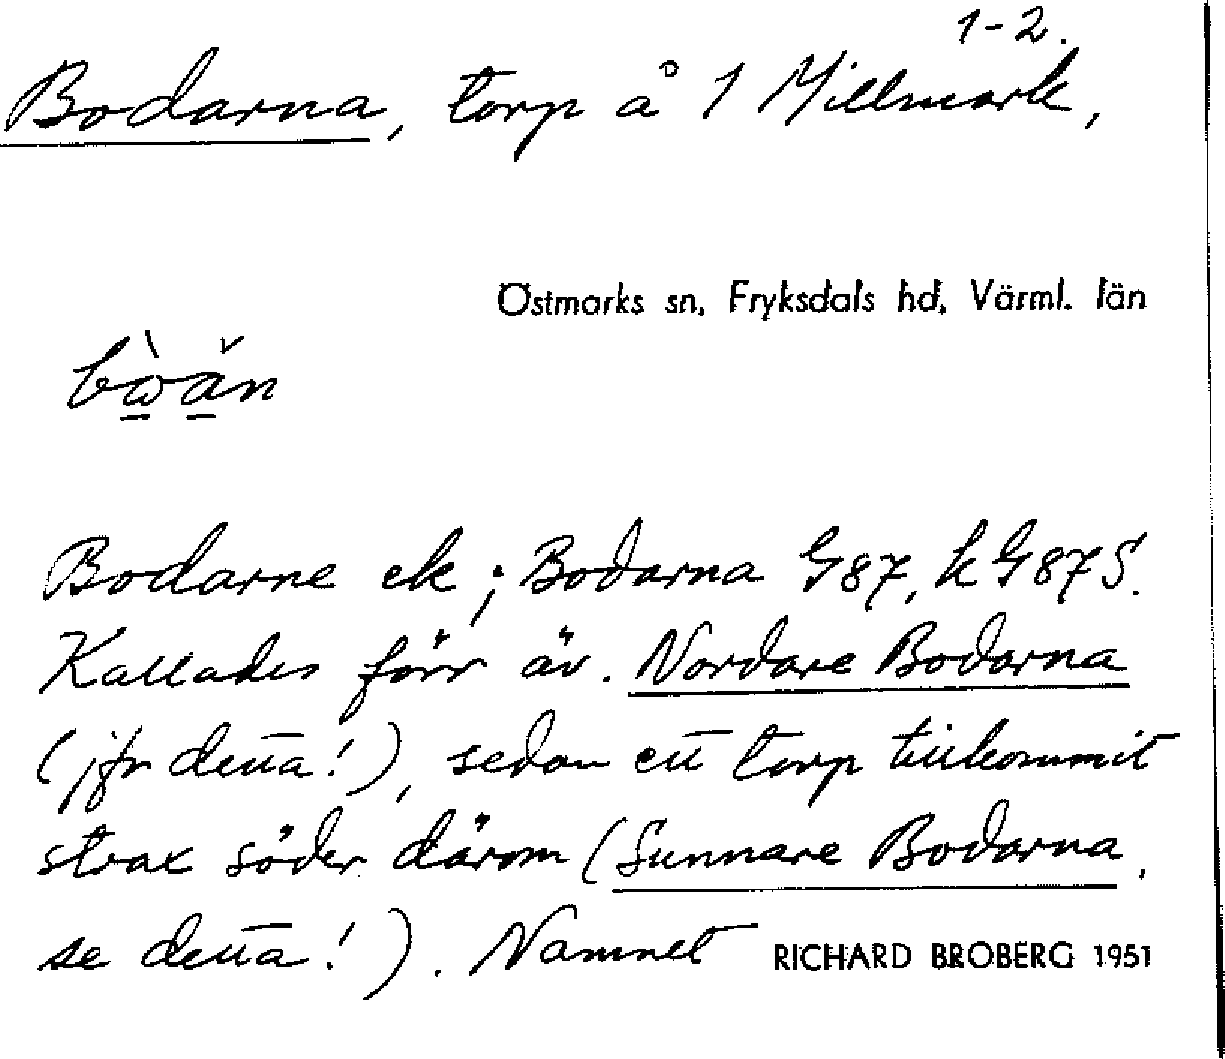 1-2.
Bodarna, torp å 1 Millmark,
Östmarks sn, Fryksdals hd, Värml. län
bὼ̲ä̲̆n
Bodarne ek ; Bodarna G87, k G87 S.
Kallades förr äv. Nordare Bodarna
(jfr detta!), sedan ett torp tillkommit
strax söder därom (Sunnare Bodarna,
se detta!). Namnet
RICHARD BROBERG 1951